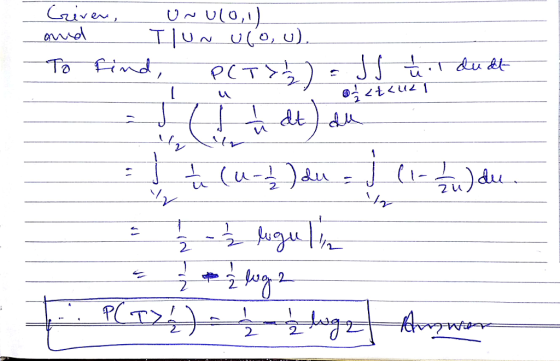 Given, U ~ U(0,1)
and T|U ~ U(0, U).
To Find, P(T > 1/2) = ∬_{1/2<t<u<1} 1/u · 1 du dt
= ∫_{1/2}^{1} ( ∫_{1/2}^{u} 1/u dt ) du
= ∫_{1/2}^{1} 1/u (u - 1/2) du = ∫_{1/2}^{1} (1 - 1/2u) du.
= 1/2 - 1/2 log u |_{1/2}^{1}
= 1/2 - 1/2 log 2
∴ P(T > 1/2) = 1/2 - 1/2 log 2 Answer